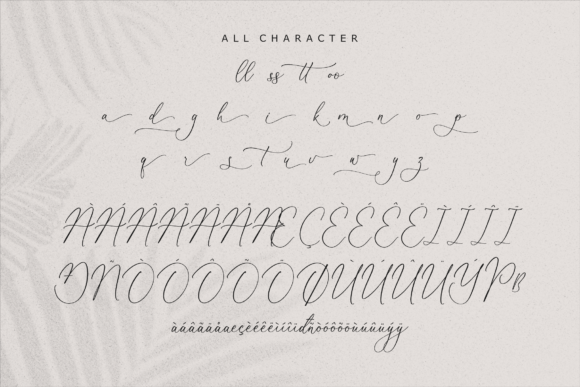 ALL CHARACTER
ll ss tt oo
a d g h i k m n o p
q r s t u v w y z
ÀÁÂÃÄÅÆÇÈÉÊËÌÍÎÏ
ÐÑÒÓÔÕÖØÙÚÛÜÝÞß
àáâãäåæçèéêëìíîïðñòóôõöùúûüýÿ